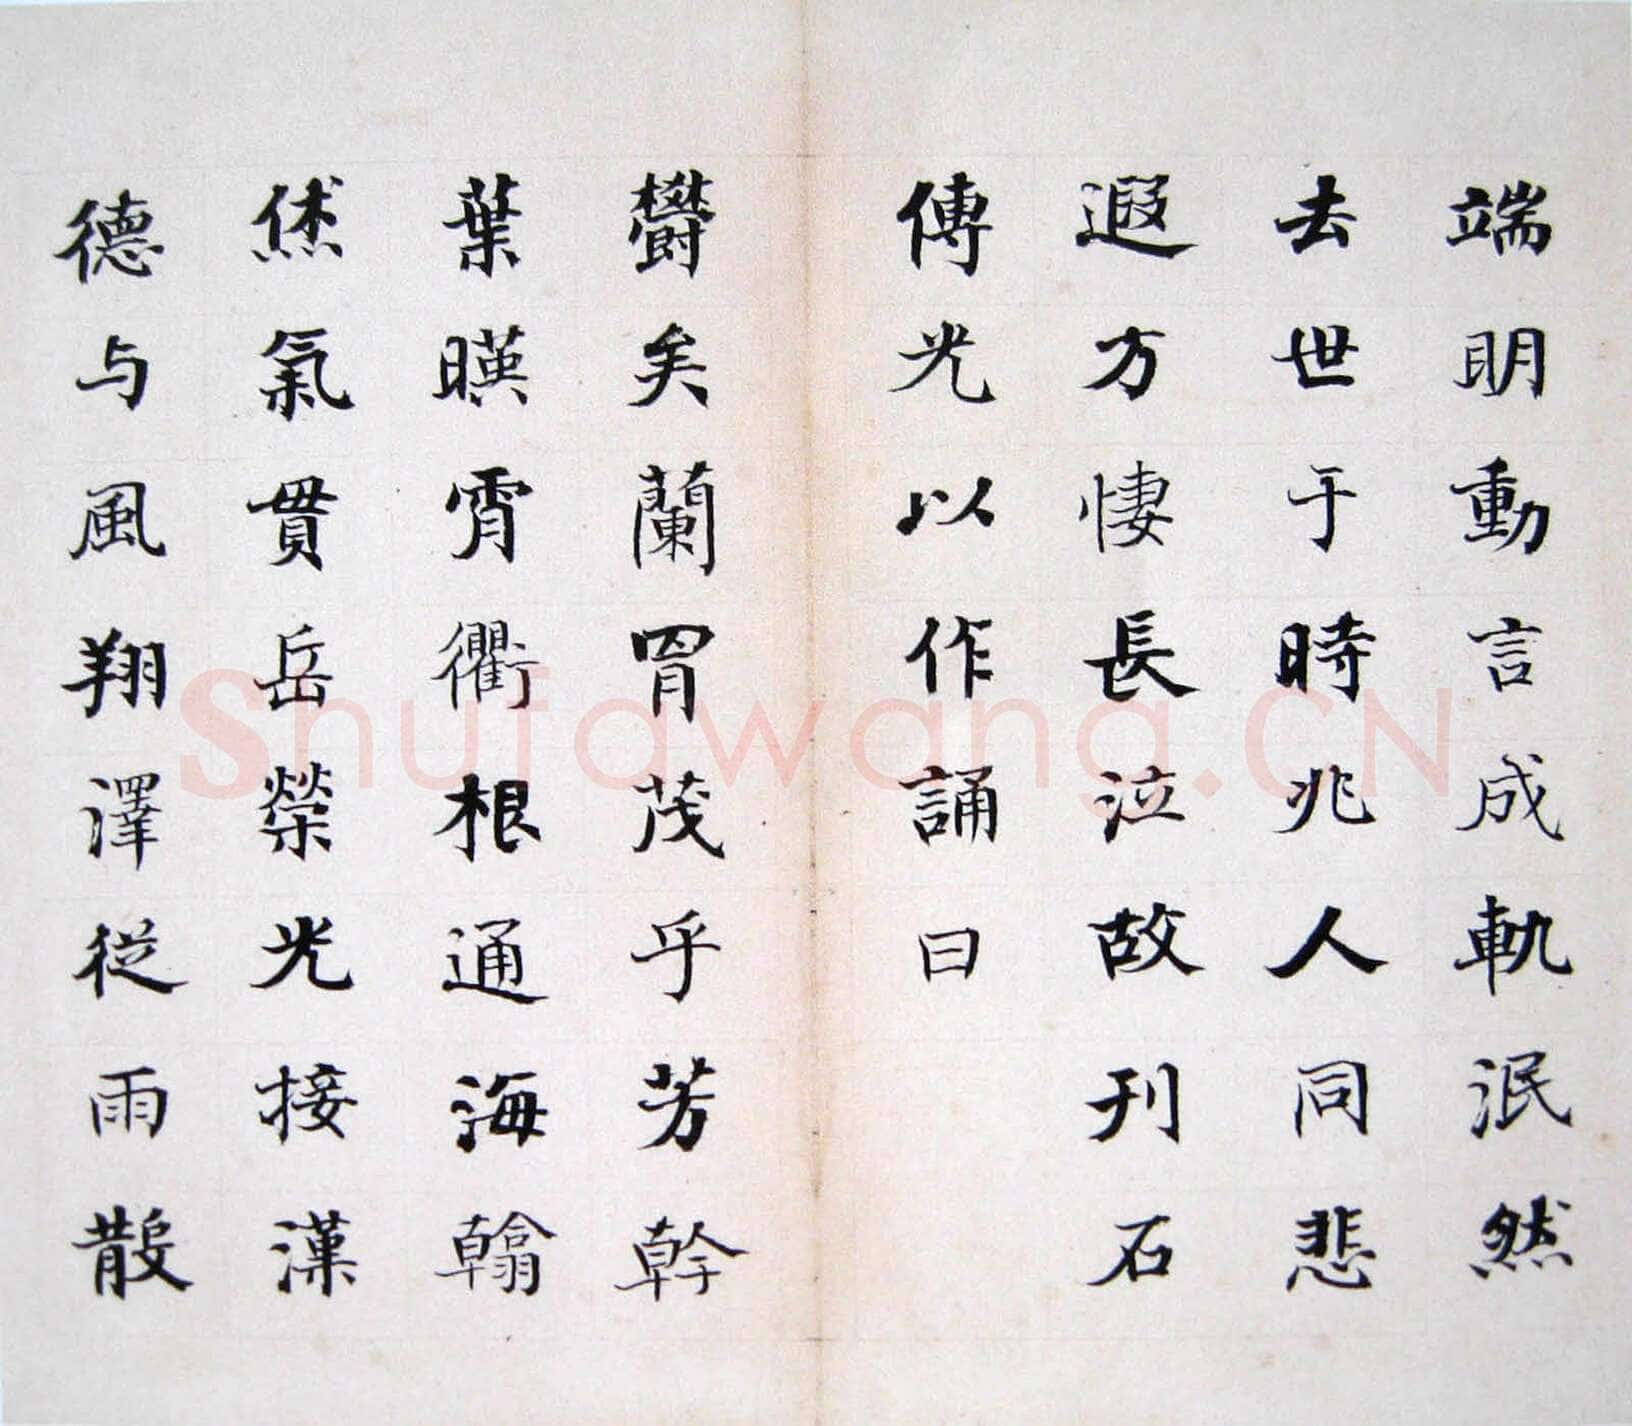 端明動言成軌泯然
去世于時兆人同悲
遐方悽長泣故刊石
傳光以作誦曰
欎矣蘭胃茂乎芳幹
葉暎霄衢根通海翰
烋氣貫岳榮光接漢
德与風翔澤從雨散
Shufawang.CN